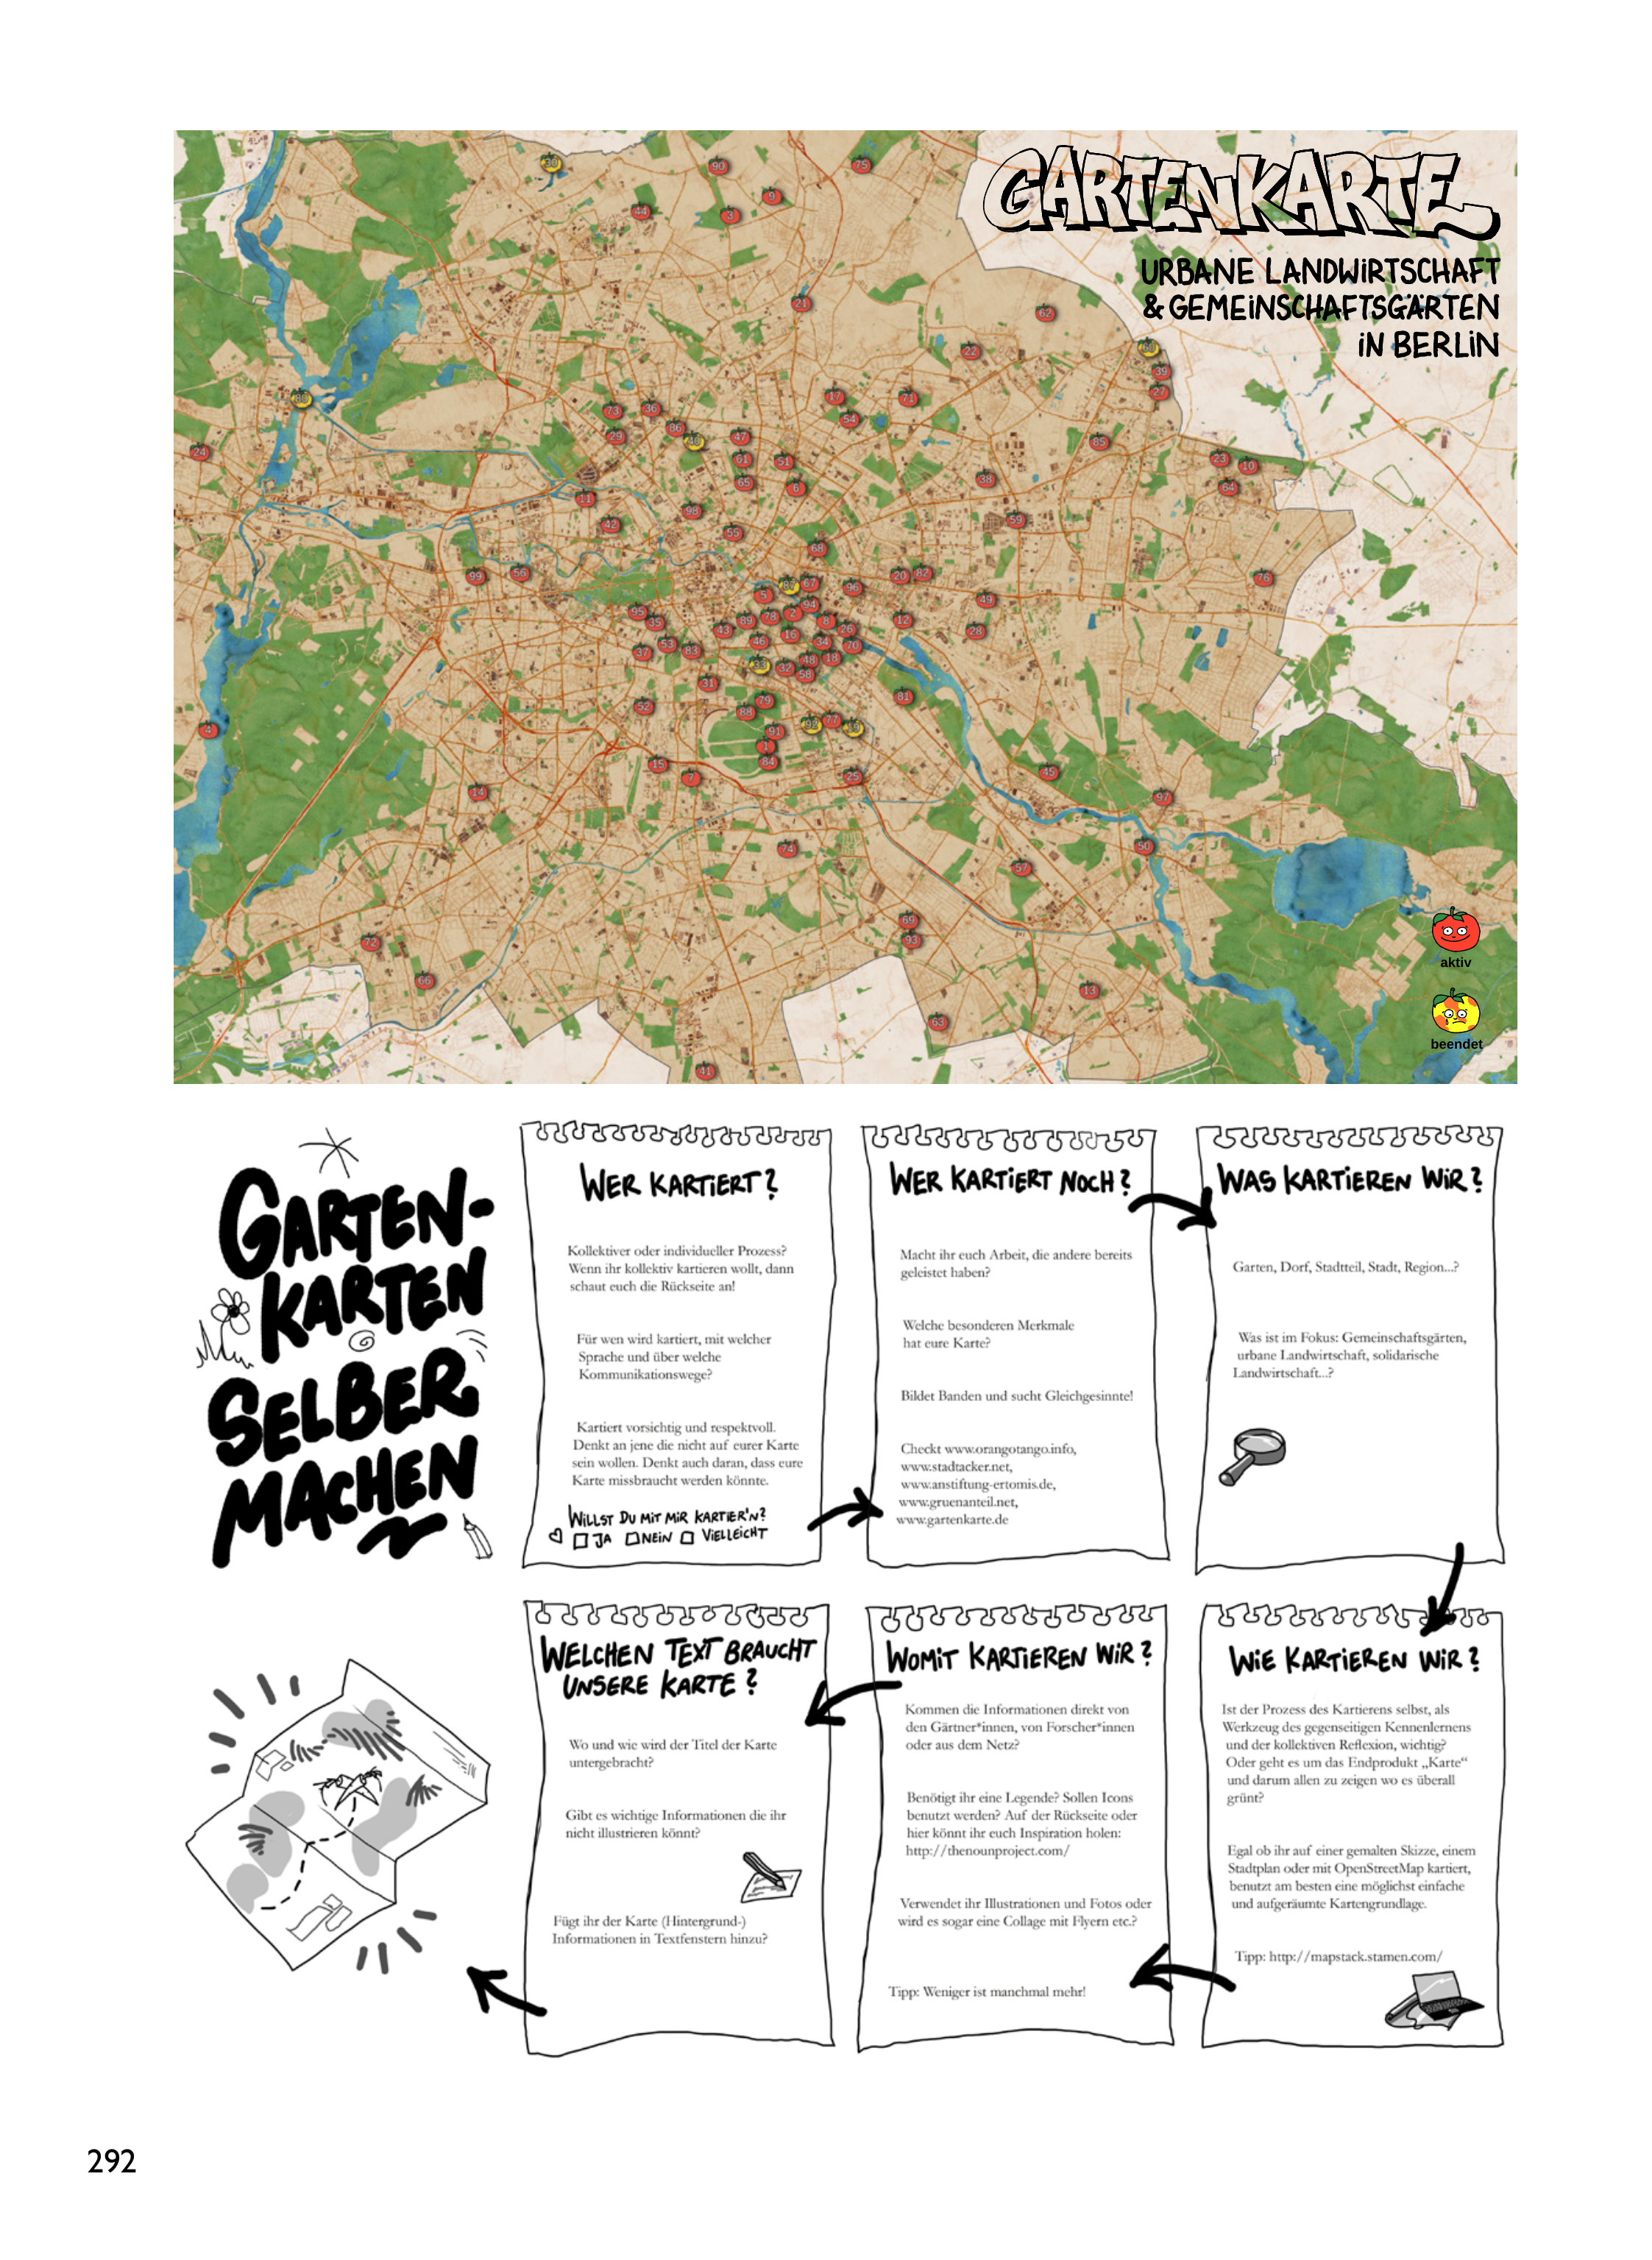 GARTENKARTE
URBANE LANDWiRTSCHAFT
& GEMEiNSCHAFTSGÄRTEN
iN BERLiN
30
90
75
9
44
3
21
62
22
39
27
80
17
71
54
73
36
86
40
29
47
85
24
61
51
23
10
65
6
38
64
11
98
42
59
55
68
99
56
20
82
76
87
67
96
5
94
49
95
35
89
78
2
8
12
43
26
28
46
16
34
70
37
53
83
33
32
48
18
58
31
79
81
52
88
4
92
77
91
1
15
84
7
25
45
14
97
74
50
57
69
93
72
66
13
63
41
aktiv
beendet
GARTEN-
KARTEN
SELBER
MACHEN
WER KARTiERT?
Kollektiver oder individueller Prozess?
Wenn ihr kollektiv kartieren wollt, dann
schaut euch die Rückseite an!
Für wen wird kartiert, mit welcher
Sprache und über welche
Kommunikationswege?
Kartiert vorsichtig und respektvoll.
Denkt an jene die nicht auf eurer Karte
sein wollen. Denkt auch daran, dass eure
Karte missbraucht werden könnte.
WiLLST DU MiT MiR KARTiER'N?
JA NEiN ViELLEiCHT
WER KARTiERT NOCH?
Macht ihr euch Arbeit, die andere bereits
geleistet haben?
Welche besonderen Merkmale
hat eure Karte?
Bildet Banden und sucht Gleichgesinnte!
Checkt www.orangotango.info,
www.stadtacker.net,
www.anstiftung-ertomis.de,
www.gruenanteil.net,
www.gartenkarte.de
WAS KARTiEREN WiR?
Garten, Dorf, Stadtteil, Stadt, Region...?
Was ist im Fokus: Gemeinschaftsgärten,
urbane Landwirtschaft, solidarische
Landwirtschaft...?
WiE KARTiEREN WiR?
Ist der Prozess des Kartierens selbst, als
Werkzeug des gegenseitigen Kennenlernens
und der kollektiven Reflexion, wichtig?
Oder geht es um das Endprodukt „Karte“
und darum allen zu zeigen wo es überall
grünt?
Egal ob ihr auf einer gemalten Skizze, einem
Stadtplan oder mit OpenStreetMap kartiert,
benutzt am besten eine möglichst einfache
und aufgeräumte Kartengrundlage.
Tipp: http://mapstack.stamen.com/
WOMiT KARTiEREN WiR?
Kommen die Informationen direkt von
den Gärtner*innen, von Forscher*innen
oder aus dem Netz?
Benötigt ihr eine Legende? Sollen Icons
benutzt werden? Auf der Rückseite oder
hier könnt ihr euch Inspiration holen:
http://thenounproject.com/
Verwendet ihr Illustrationen und Fotos oder
wird es sogar eine Collage mit Flyern etc.?
Tipp: Weniger ist manchmal mehr!
WELCHEN TEXT BRAUCHT
UNSERE KARTE?
Wo und wie wird der Titel der Karte
untergebracht?
Gibt es wichtige Informationen die ihr
nicht illustrieren könnt?
Fügt ihr der Karte (Hintergrund-)
Informationen in Textfenstern hinzu?
292